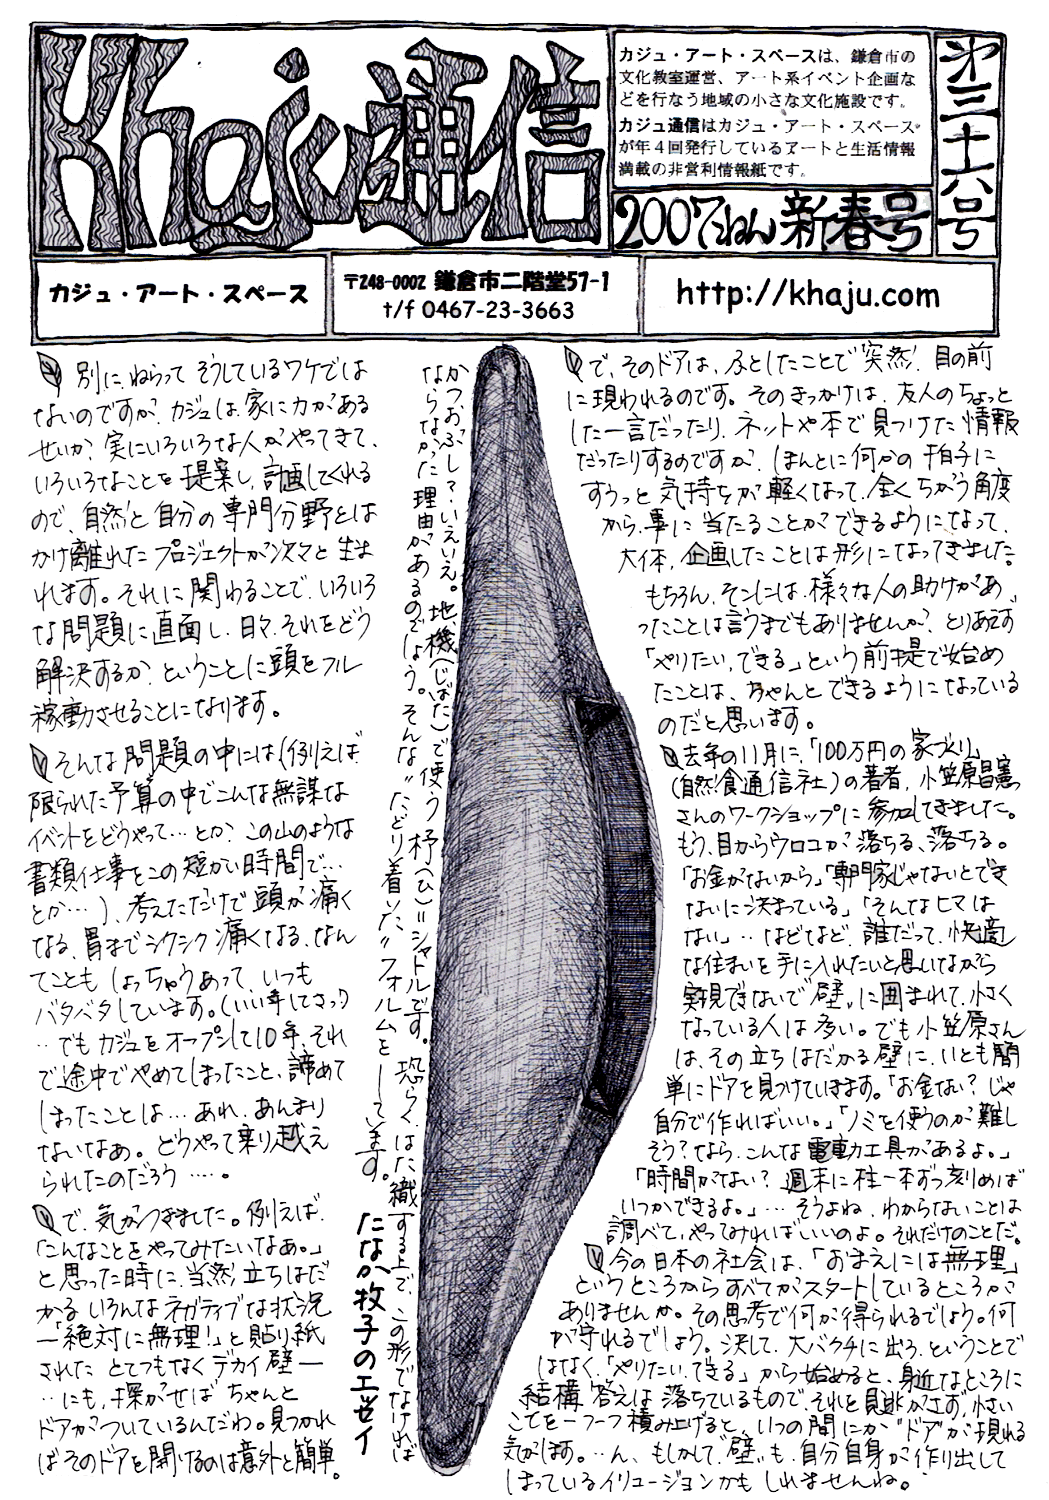 Khaju通信
カジュ・アート・スペースは、鎌倉市の
文化教室運営、アート系イベント企画な
どを行なう地域の小さな文化施設です。
カジュ通信はカジュ・アート・スペース
が年4回発行しているアートと生活情報
満載の非営利情報紙です。
2007ねん新春号
第三十六号
カジュ・アート・スペース
〒248-0002 鎌倉市二階堂57-1
t/f 0467-23-3663
http://khaju.com
別に、ねらって そうしているワケでは
ないのですが、カジュは、家に力がある
せいか、実にいろいろな人がやってきて、
いろいろなことを提案し、計画してくれる
ので、自然と自分の専門分野とは
かけ離れたプロジェクトが次々と生ま
れます。それに関わることで、いろいろ
な問題に直面し、日々、それをどう
解決するか、ということに頭をフル
稼動させることになります。
そんな問題の中には(例えば、
限られた予算の中でこんな無謀な
イベントをどうやって…とか、この山のような
書類仕事をこの短かい時間で…
とか…)、考えただけで頭が痛く
なる、胃までシクシク痛くなる、なん
てことも しょっちゅうあって、いつも
バタバタしています。(いい年してさっ!)
‥でもカジュをオープンして10年、それ
で途中でやめてしまったこと、諦めて
しまったことは…あれ、あんまり
ないなぁ。どうやって乗り越え
られたのだろう‥‥。
で、気がつきました。例えば、
「こんなことをやってみたいなぁ。」
と思った時に、当然、立ちはだ
かる いろんなネガティブな状況
―「絶対に無理!」と貼り紙
された とてつもなくデカイ壁―
‥にも、探がせば ちゃんと
ドアがついているんだわ。見つかれ
ばそのドアを開けるのは意外と簡単。
かつおぶし?いえいえ。地機(じばた)で使う杼(ひ)=シャトルです。恐らく、はた織する上で、この形でなければ
ならなかった理由があるのでしょう。そんな"たどり着いた"フォルムをしています。
たなか牧子のエッセイ
で、そのドアは、ふとしたことで突然、目の前
に現われるのです。そのきっかけは、友人のちょっと
した一言だったり、ネットや本で見つけた情報
だったりするのですが、ほんとに何かの拍子に
すうっと気持ちが軽くなって、全くちがう角度
から、事に当たることができるようになって、
大体、企画したことは形になってきました。
もちろん、そこには、様々な人の助けがあ
ったことは言うまでもありませんが、とりあえず
「やりたい、できる」という前提で始め
たことは、ちゃんとできるようになっている
のだと思います。
去年の11月に、「100万円の家づくり」
(自然食通信社)の著者、小笠原昌憲
さんのワークショップに参加してきました。
もう、目からウロコが落ちる、落ちる。
「お金がないから」「専門家じゃないとでき
ないに決まっている」「そんなヒマは
ない」‥などなど、誰だって、快適
な住まいを手に入れたいと思いながら
実現できないで"壁"に囲まれて、小さく
なっている人は多い。でも小笠原さん
は、その立ちはだかる壁に、いとも簡
単にドアを見つけていきます。「お金ない?じゃ
自分で作ればいい。」「ノミを使うのが難し
そう?なら、こんな電動工具があるよ。」
「時間がない?週末に柱一本ずつ刻めば
いつかできるよ。」…そうよね、わからないことは
調べて、やってみればいいのよ。それだけのことだ。
今の日本の社会は、「おまえには無理」
というところからすべてがスタートしているところが
ありませんか。その思考で何が得られるでしょう。何
が守れるでしょう。決して、大バクチに出ろ、ということで
はなく、「やりたい、できる」から始めると、身近なところに
結構答えは落ちているもので、それを見逃がさず、小さい
ことを一つ一つ積み上げると、いつの間にか"ドア"が現れる
気がします。…ん、もしかして"壁"も、自分自身が作り出して
しまっているイリュージョンかもしれませんね。